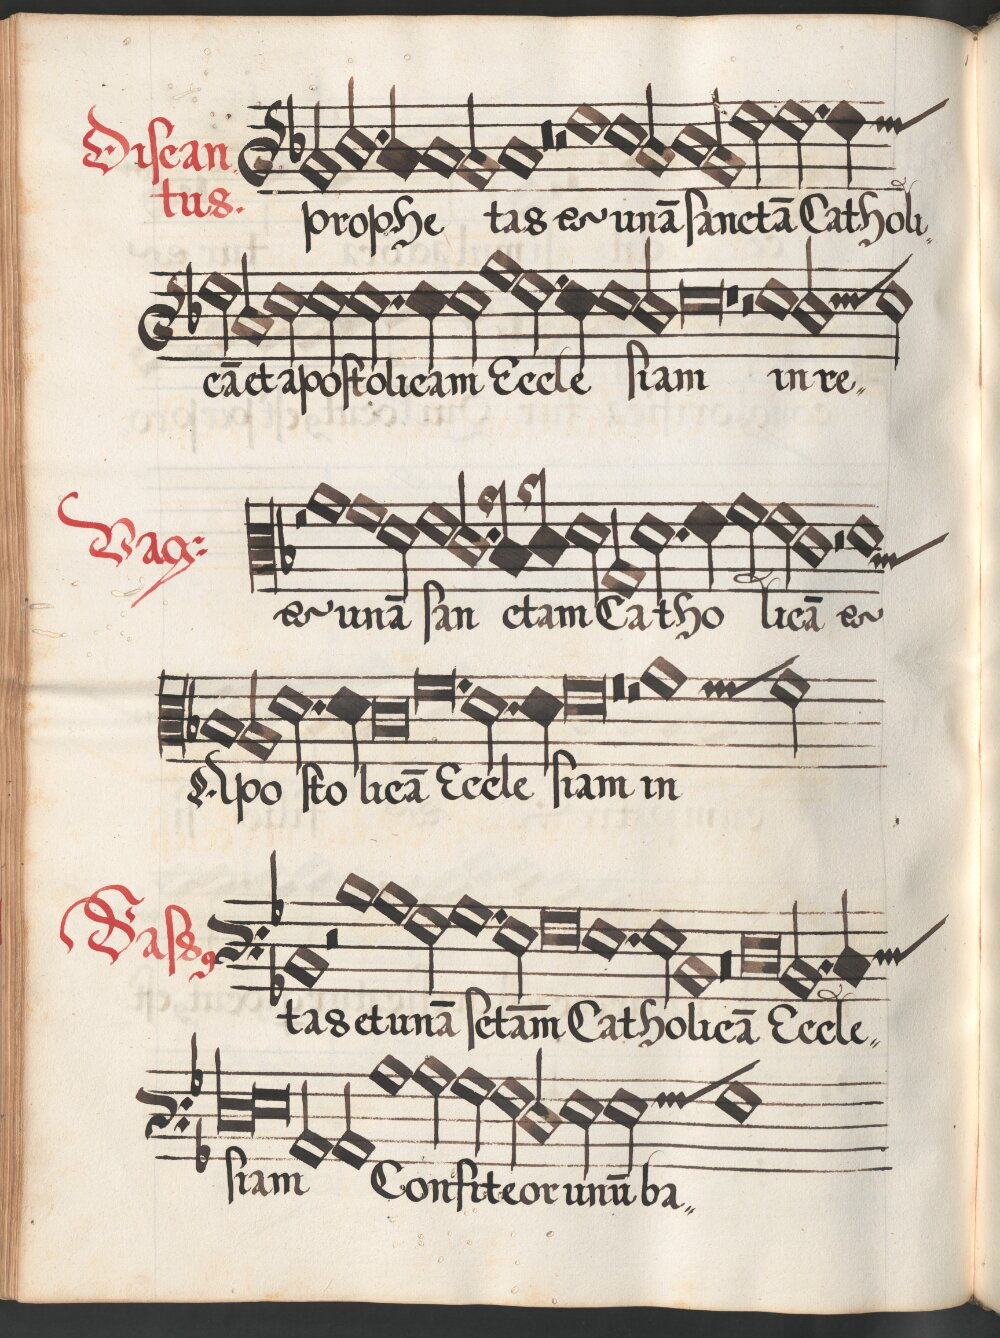 Discan
tus.
prophe tas & unā sanctā Catholi„
cā et apostolicam Eccle siam in re„
Vag:
& unā san ctam Catho licā &
Apo sto licā Eccle siam in
Bassꝯ
tas et unā sctām Catholicā Eccle„
siam Confiteor unū ba„